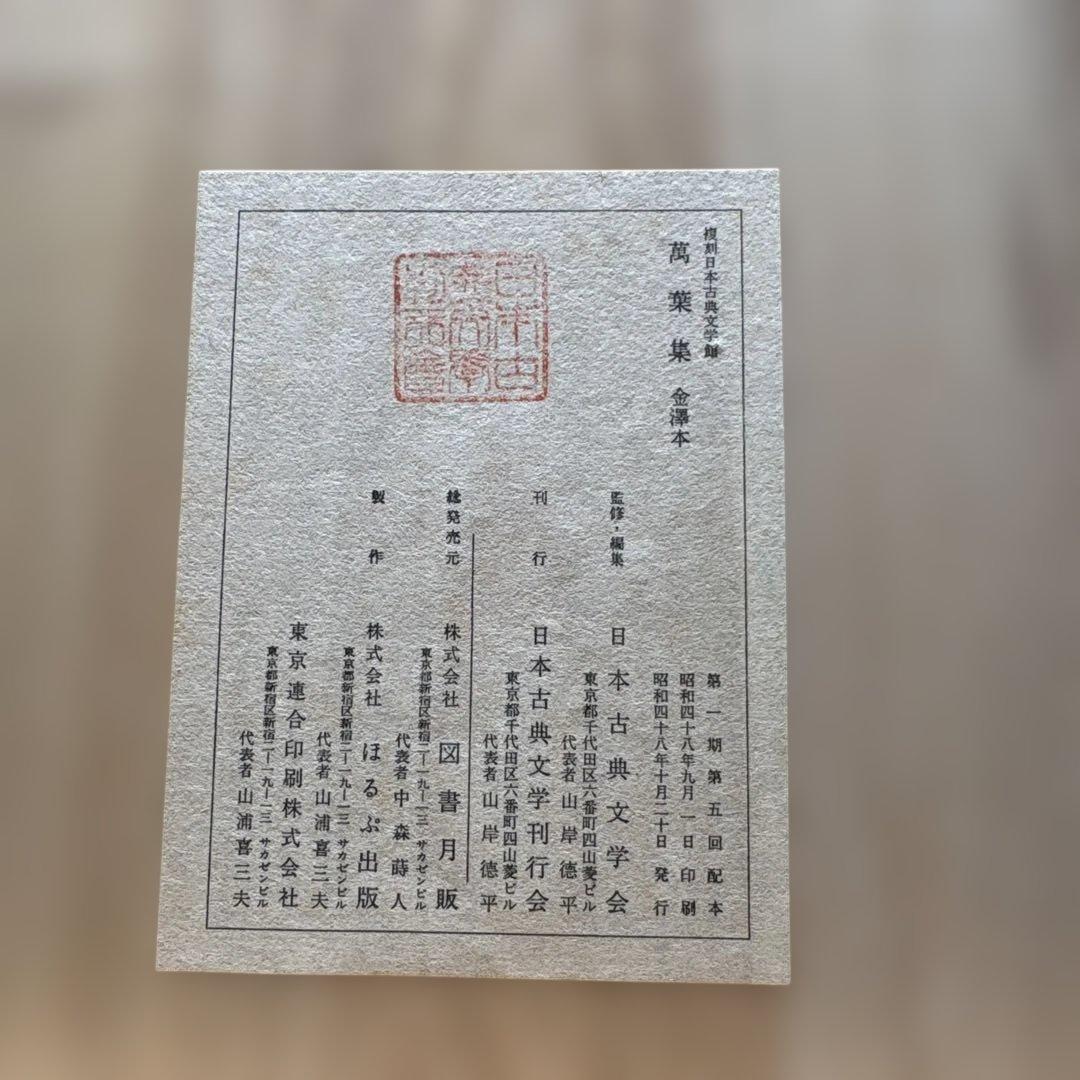 複刻日本古典文学館
萬葉集 金澤本
第一期第五回配本
昭和四十八年九月一日印刷
昭和四十八年十月二十日発行
監修・編集 日本古典文学会
東京都千代田区六番町四山菱ビル
代表者 山岸徳平
刊行 日本古典文学刊行会
東京都千代田区六番町四山菱ビル
代表者 山岸徳平
総発売元 株式会社 図書月販
東京都新宿区新宿二ー一九ー一三 サカゼンビル
代表者 中森蒔人
製作 株式会社 ほるぷ出版
東京都新宿区新宿二ー一九ー一三 サカゼンビル
代表者 山浦喜三夫
東京連合印刷株式会社
東京都新宿区新宿二ー一九ー一三 サカゼンビル
代表者 山浦喜三夫